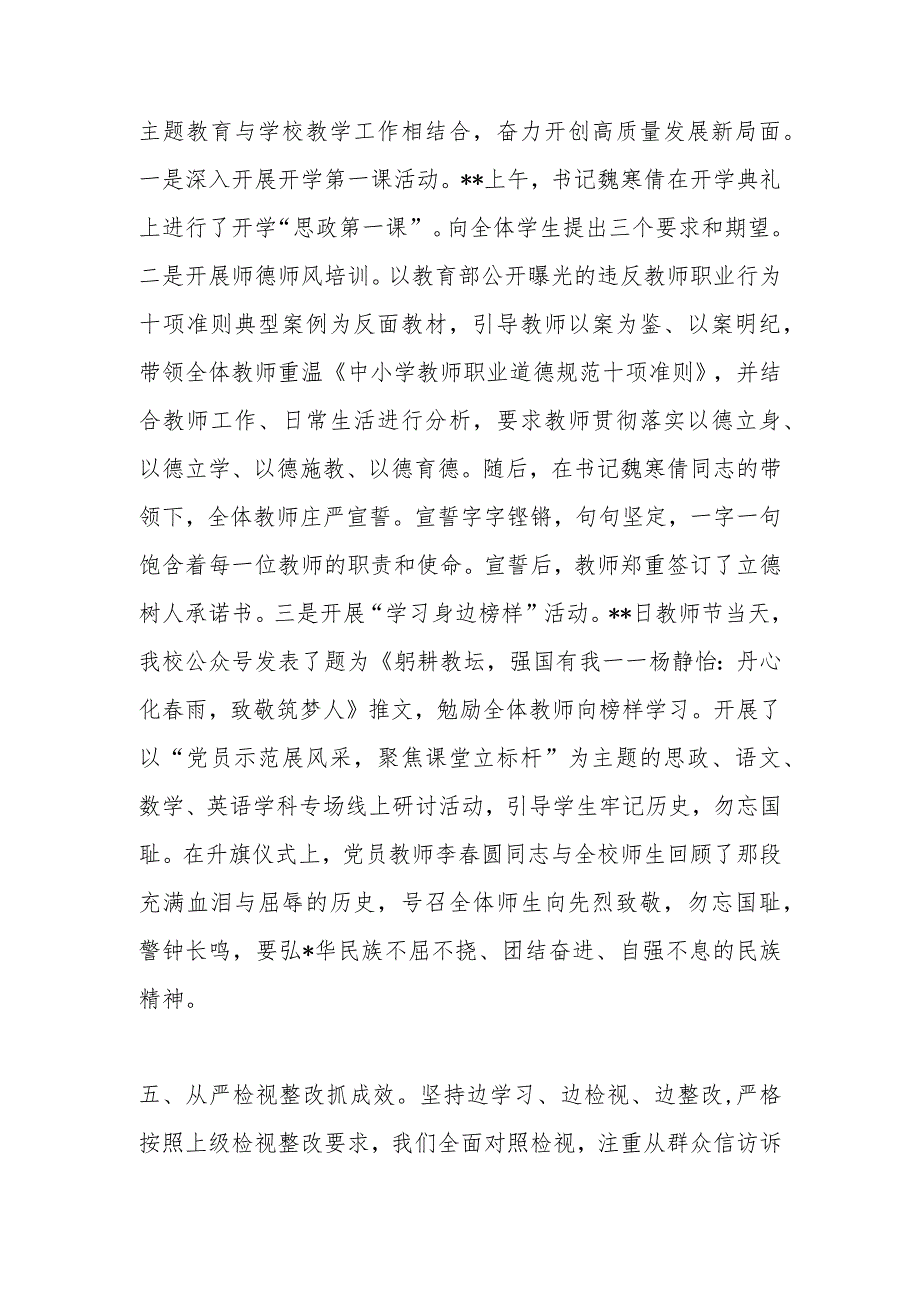 主题教育与学校教学工作相结合，奋力开创高质量发展新局面。
一是深入开展开学第一课活动。**上午，书记魏寒倩在开学典礼
上进行了开学“思政第一课”。向全体学生提出三个要求和期望。
二是开展师德师风培训。以教育部公开曝光的违反教师职业行为
十项准则典型案例为反面教材，引导教师以案为鉴、以案明纪，
带领全体教师重温《中小学教师职业道德规范十项准则》，并结
合教师工作、日常生活进行分析，要求教师贯彻落实以德立身、
以德立学、以德施教、以德育德。随后，在书记魏寒倩同志的带
领下，全体教师庄严宣誓。宣誓字字铿锵，句句坚定，一字一句
饱含着每一位教师的职责和使命。宣誓后，教师郑重签订了立德
树人承诺书。三是开展“学习身边榜样”活动。**日教师节当天，
我校公众号发表了题为《躬耕教坛，强国有我一一杨静怡：丹心
化春雨，致敬筑梦人》推文，勉励全体教师向榜样学习。开展了
以“党员示范展风采，聚焦课堂立标杆”为主题的思政、语文、
数学、英语学科专场线上研讨活动，引导学生牢记历史，勿忘国
耻。在升旗仪式上，党员教师李春圆同志与全校师生回顾了那段
充满血泪与屈辱的历史，号召全体师生向先烈致敬，勿忘国耻，
警钟长鸣，要弘*华民族不屈不挠、团结奋进、自强不息的民族
精神。
五、从严检视整改抓成效。坚持边学习、边检视、边整改,严格
按照上级检视整改要求，我们全面对照检视，注重从群众信访诉